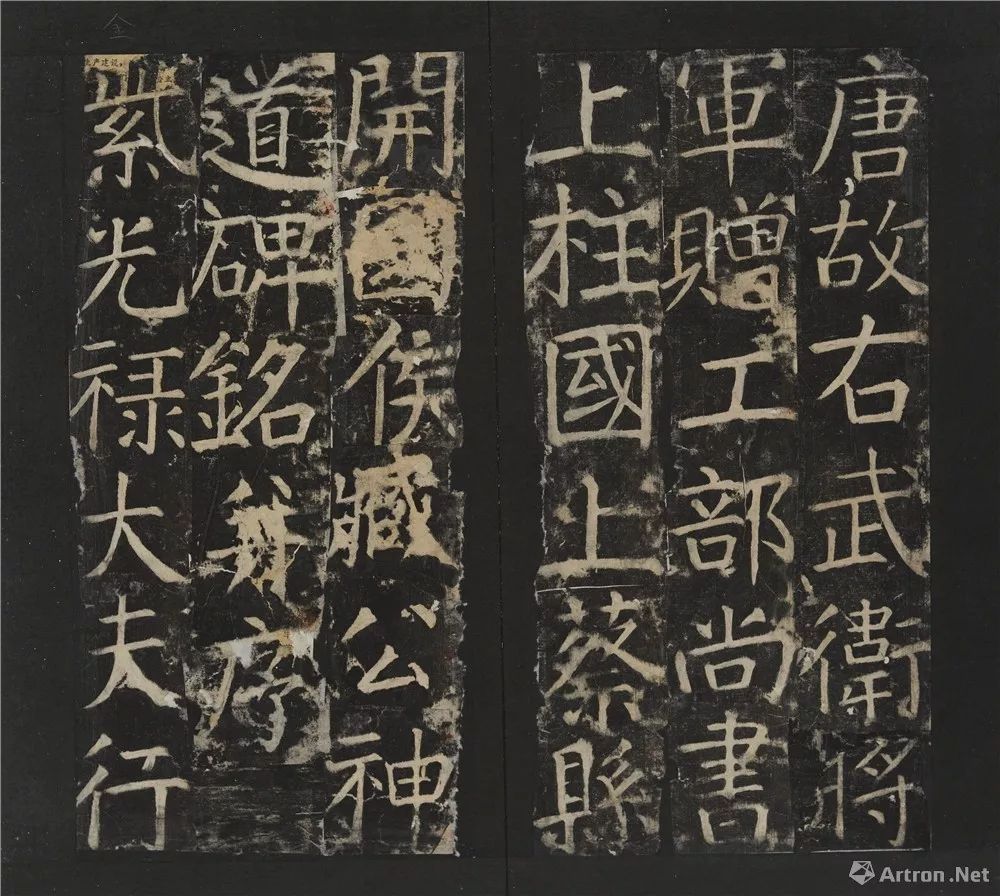 唐故右武衛將
軍贈工部尚書
上柱國上蔡縣
開國侯臧公神
道碑銘并序
金
产建设，
紫光禄大夫行
Artron.Net